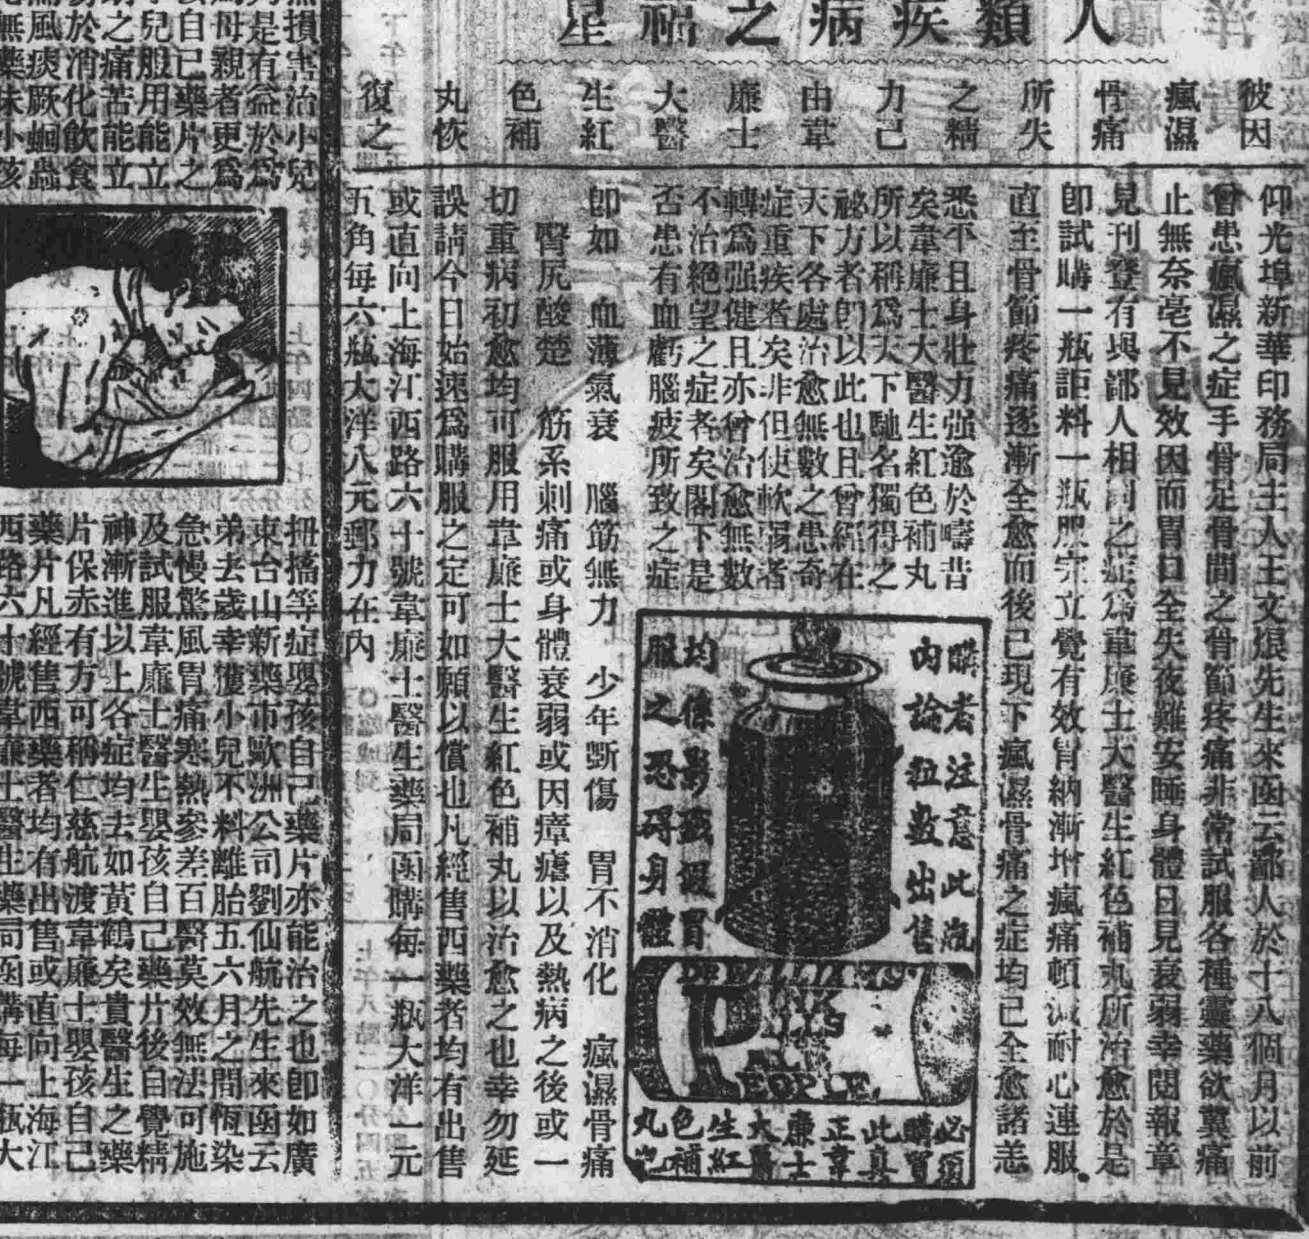 人類疾病之福星
彼因
瘋濕
骨痛
所失
之精
力己
由韋
廉士
大醫
生紅
色補
丸恢
復之
仰光埠新華印務局主人王文烺先生來函云鄙人於十八個月以前
曾患瘋濕之症手骨足骨間之骨節疼痛非常試服各種靈藥欲冀痛
止無奈毫不見效因而胃口全失夜難安睡身體日見衰弱幸閱報章
見刊登有與鄙人相同之症為韋廉士大醫生紅色補丸所治愈於是
卽試購一瓶詎料一瓶服完立覺有效胃納漸增瘋痛頓減耐心連服
直至骨節疼痛逐漸全愈而後已現下瘋濕骨痛之症均已全愈諸恙
悉平且身壯力强逾於疇昔
矣韋廉士大醫生紅色補丸
所以稱爲天下馳名獨得之
祕方者卽以此也且曾經在
天下各處治愈無數之患奇
症重疾者矣非但使軟弱者
轉爲强健且亦曾治愈無數
不治絕望之症者矣閣下是
否患有血虧腦疲所致之症
卽如 血薄氣衰 腦筋無力 少年斲傷 胃不消化 瘋濕骨痛
臀尻酸楚 筋系刺痛或身體衰弱或因瘴瘧以及熱病之後或一
切重病初愈均可服用韋廉士大醫生紅色補丸以治愈之也幸勿延
誤請今日始速爲購服之定可如願以償也凡經售西藥者均有出售
或直向上海江西路六十號韋廉士醫生藥局函購每一瓶大洋一元
五角每六瓶大洋八元郵力在內
購者注意此瓶
內論粒數出售
均係影戤假冒
服之恐碍身體
DR WILLIAMS'
PINK
PILLS
PEOPLE
必須
購買
此眞
正韋
廉士
大醫
生紅
色補
丸
損害治小兒
是有益於爲
母親者更爲
自己藥片之
兒服用能立
之痛苦能立
於消化飲食
風痰厥蛔蟲
無藥味小孩
搐等症嬰孩自己藥片亦能治之也卽如廣
東台山新藥市歐洲公司劉仙航先生來函云
弟去歲幸獲小兒不料離胎五六月之間恆染
急慢驚風胃痛寒熱參差百醫莫效無法可施
及試服韋廉士醫生嬰孩自己藥片後自覺精
神漸進以上各症均去如黃鶴矣貴醫生之藥
片保赤有方可稱仁慈航渡韋廉士嬰孩自己
藥片凡經售西藥者均有出售或直向上海江
西路六十號韋廉士醫生藥局函購每一瓶大